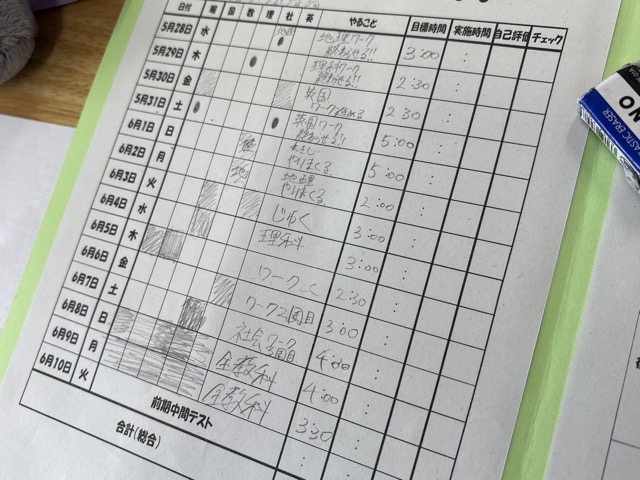 日付 曜 国 数 理 社 英 やること 目標時間 実施時間 自己評価 チェック
5月28日 水 地理ワーク 終わせる!! 3:00 :
5月29日 木 理科ワーク 終わせる!! 2:30 :
5月30日 金 英国 ワーク進める 2:30 :
5月31日 土 英国ワーク 終わせる!! 5:00 :
6月1日 日 やりまくる 5:00 :
6月2日 月 地理 やりまくる 2:00 :
6月3日 火 じゅく 3:00 :
6月4日 水 理科 3:00 :
6月5日 木 ワーク 2:30 :
6月6日 金 ワーク2周目 3:00 :
6月7日 土 社会ワーク 4:00 :
6月8日 日 全教科 4:00 :
6月9日 月 全教科 3:30 :
6月10日 火 前期中間テスト
合計(総合)
PLASTIC ERASER
NO